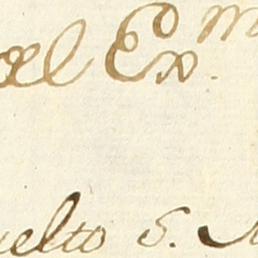 el Ex.ᵐ
uelto S.